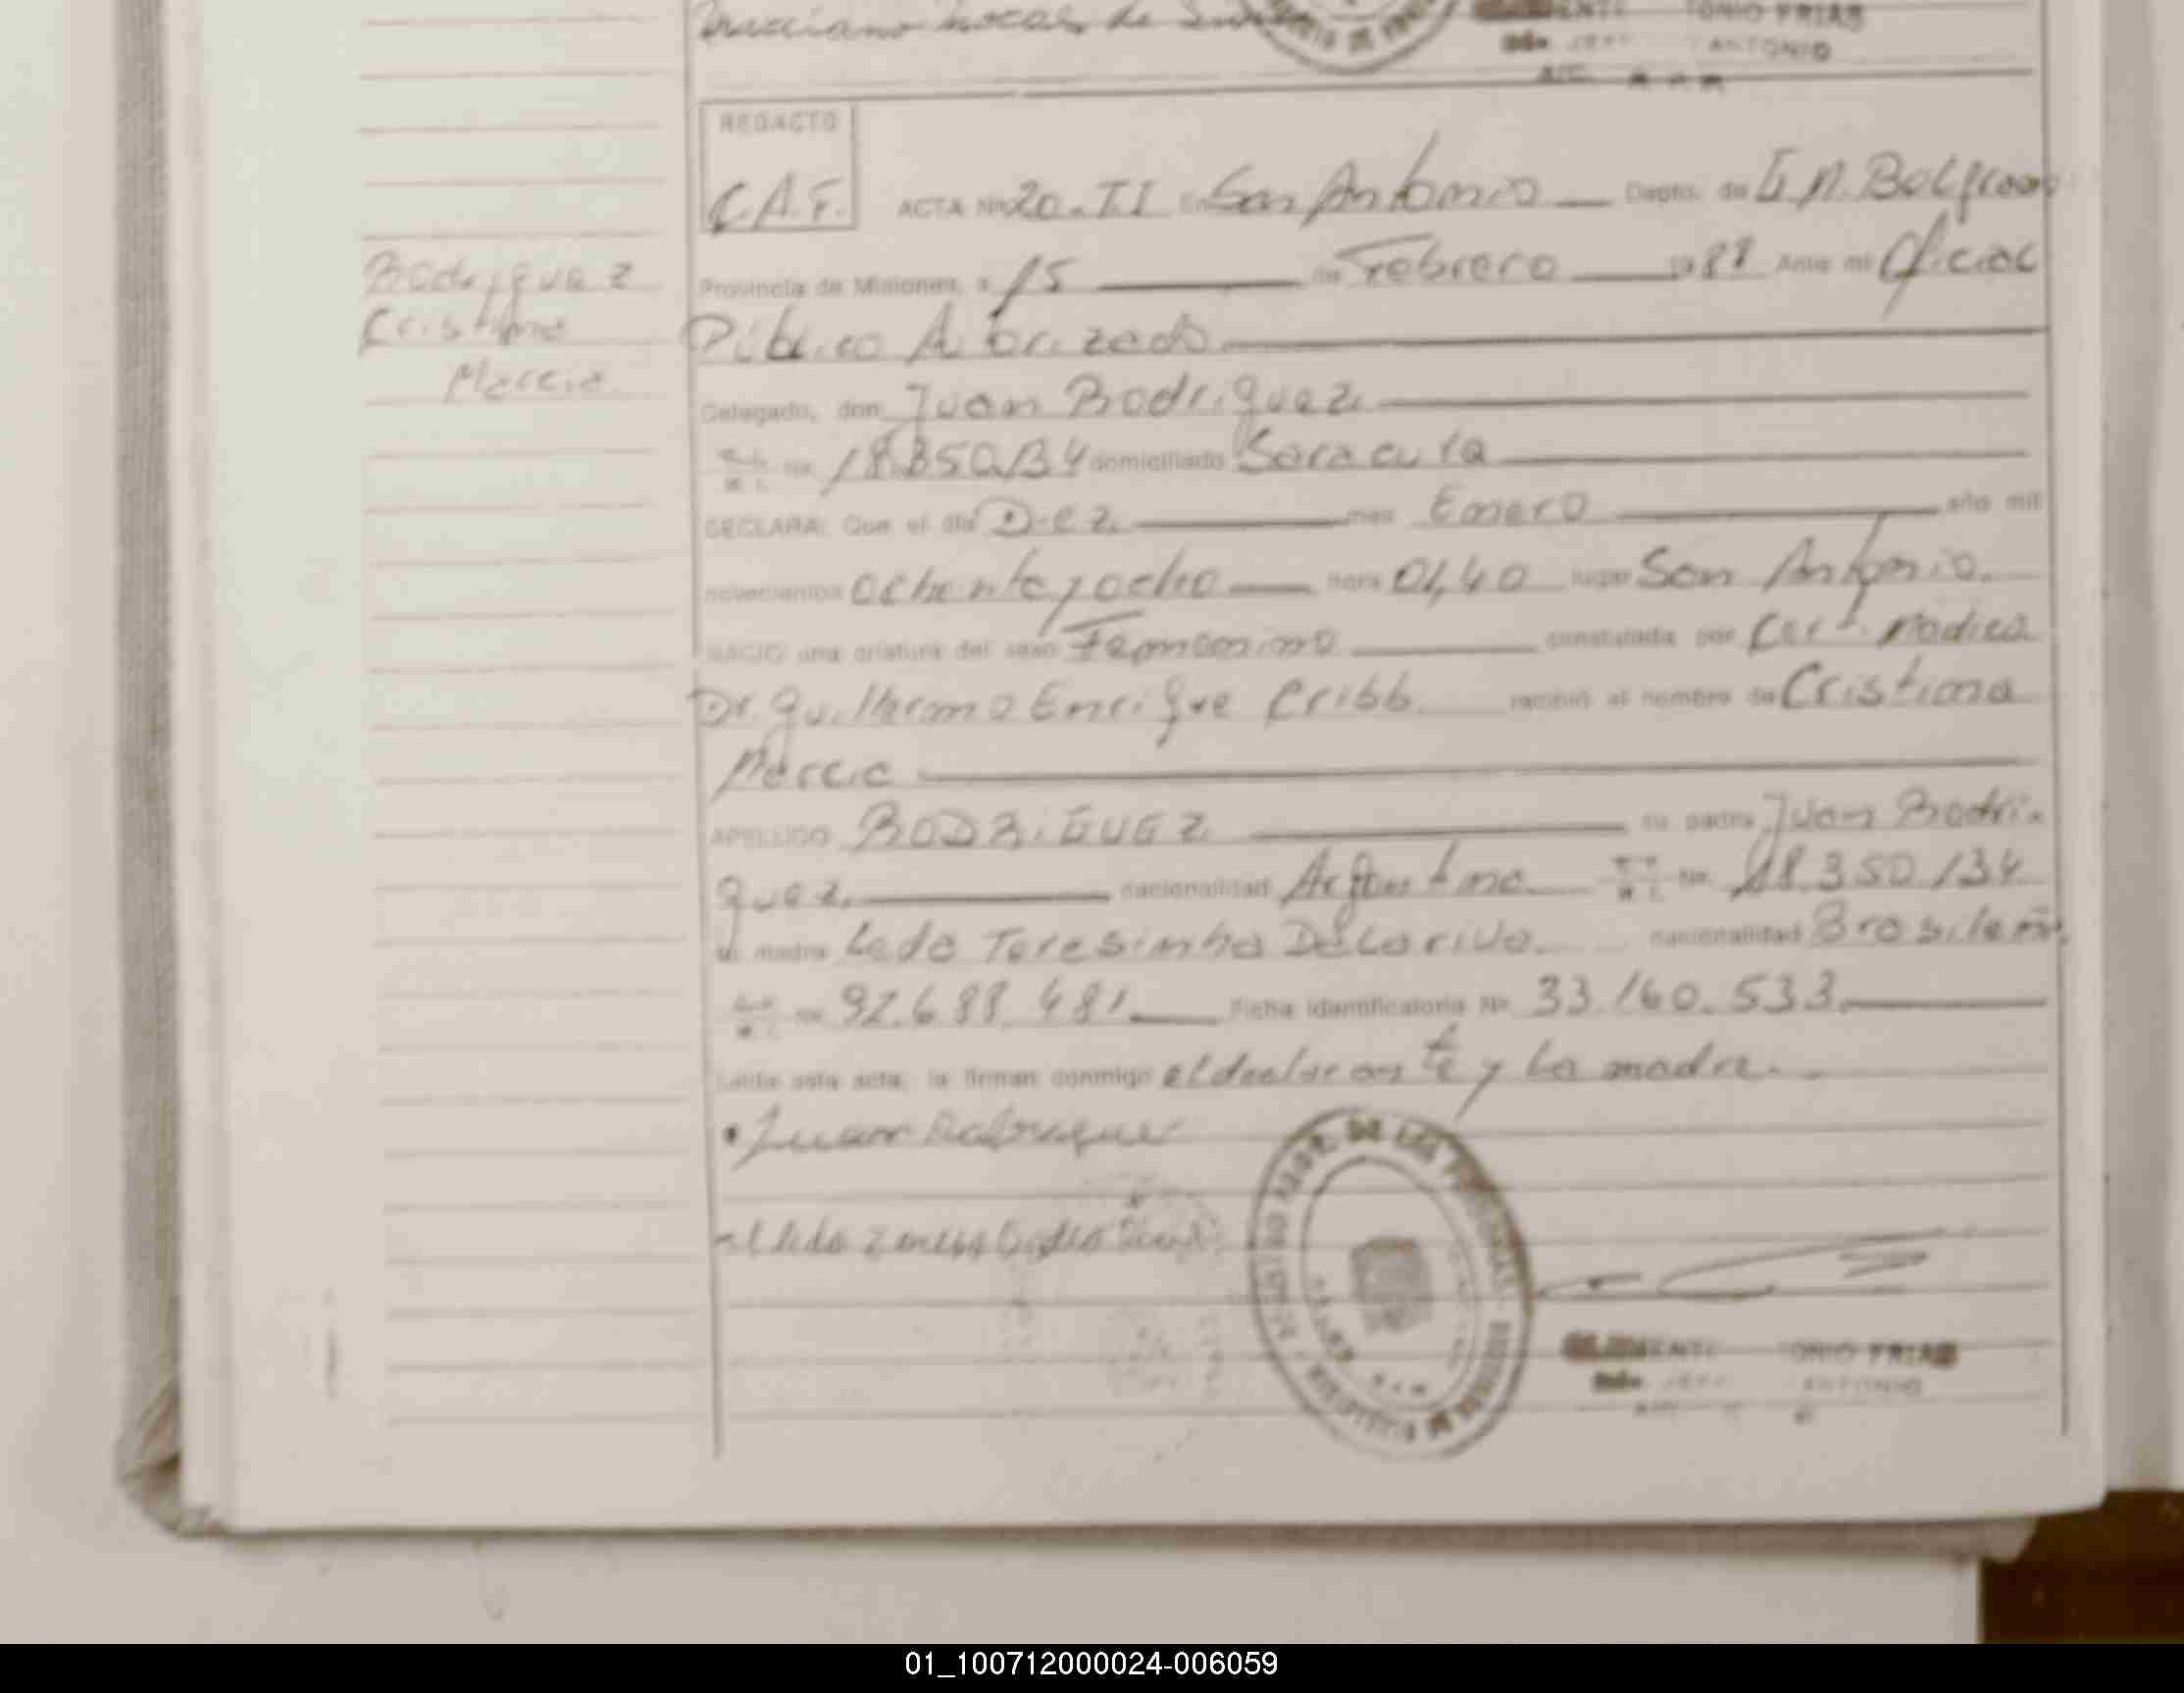 TONIO FRIAS
ANTONIO
REDACTO
C.A.F. ACTA Nº 20-II En San Antonio Depto. de G.M. Belgrano
Provincia de Misiones, a 15 de Febrero 1988 Ante mi Oficial
Público Autorizado
Rodriguez
Cristina
Marcia
Delegado, don Juan Rodriguez
M. I. Nº 18.350.134 domiciliado Saracura
DECLARA: Que el día Diez mes Enero año mil
novecientos ochenta y ocho hora 01,40 lugar San Antonio.
NACIO una criatura del sexo Femenino constatada por Cert. Medico
Dr. Guillermo Enrique Cribb. recibió el nombre de Cristina
Marcia
APELLIDO RODRIGUEZ su padre Juan Rodri-
guez. nacionalidad Argentina M. I. Nº 18.350.134
su madre Leda Teresinha Dalarivo. nacionalidad Brasileña
92.688.481 Ficha Identificatoria Nº 33.160.533
Leída esta acta, la firman conmigo el declarante y la madre.
Juan Rodriguez
REG. DE LAS PERSONAS
ONIO FRIAS
ANTONIO
01_100712000024-006059